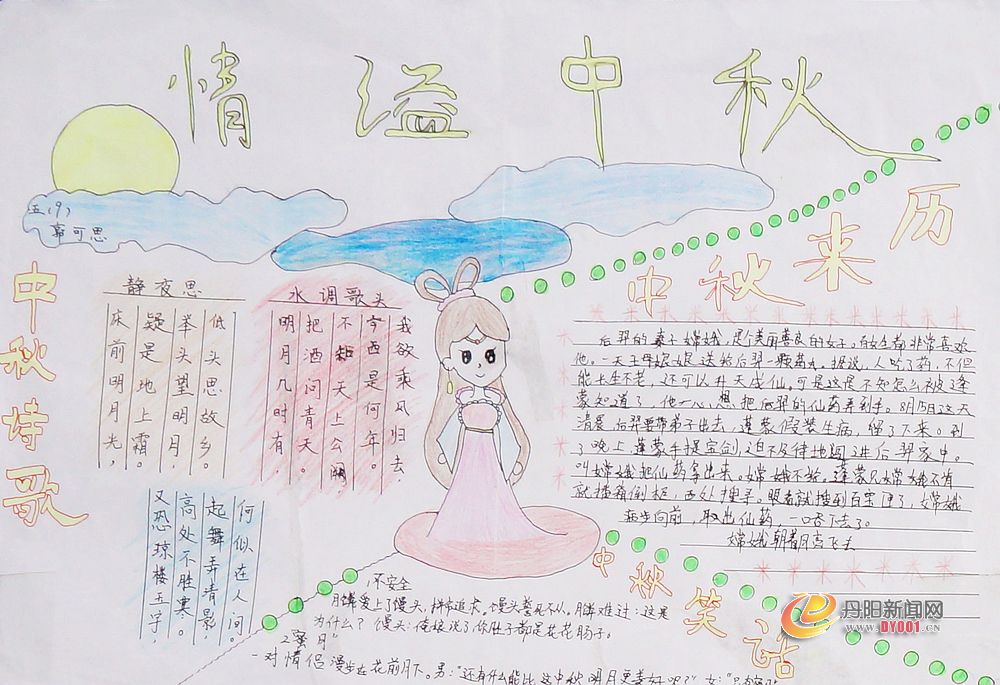 情溢中秋
五(9)
可思
中秋诗歌
静夜思
床前明月光，
疑是地上霜。
举头望明月，
低头思故乡。
水调歌头
明月几时有，
把酒问青天。
不知天上公阙，
今西是何年。
我欲乘风归去，
又恐琼楼玉宇，
高处不胜寒。
起舞弄清影，
何似在人间。
中秋来历
后羿的妻子嫦娥，是个美丽善良的女子。非常喜欢
他。一天王母娘娘送给后羿一颗药丸。据说，人吃了药，不但
能长生不老，还可以升天成仙。可是这是不知怎么被逢
蒙知道了，他一心想把后羿的仙药弄到手。8月15日这天
清晨，后羿要带弟子出去，蓬蒙假装生病，留了下来。到
了晚上，蓬蒙手提宝剑，迫不及待地闯进后羿家中。
叫嫦娥把仙药拿出来。嫦娥不给。蓬蒙见嫦娥不肯
就，西处搜寻。眼看就搜到百宝匣了，嫦娥
向前，取出仙药，一口吞下去了。
嫦娥朝着月亮飞去
中秋笑话
1不安全
月饼爱上了馒头，拼命追求。馒头誓死不从。月饼难过：这是
为什么？馒头：俺娘说了你肚子都是花花肠子。
2蜜月
一对情侣漫步在花前月下。男："还有什么能比这中秋明月更美好呢？"女：
丹阳新闻网
WWW.DY001.CN